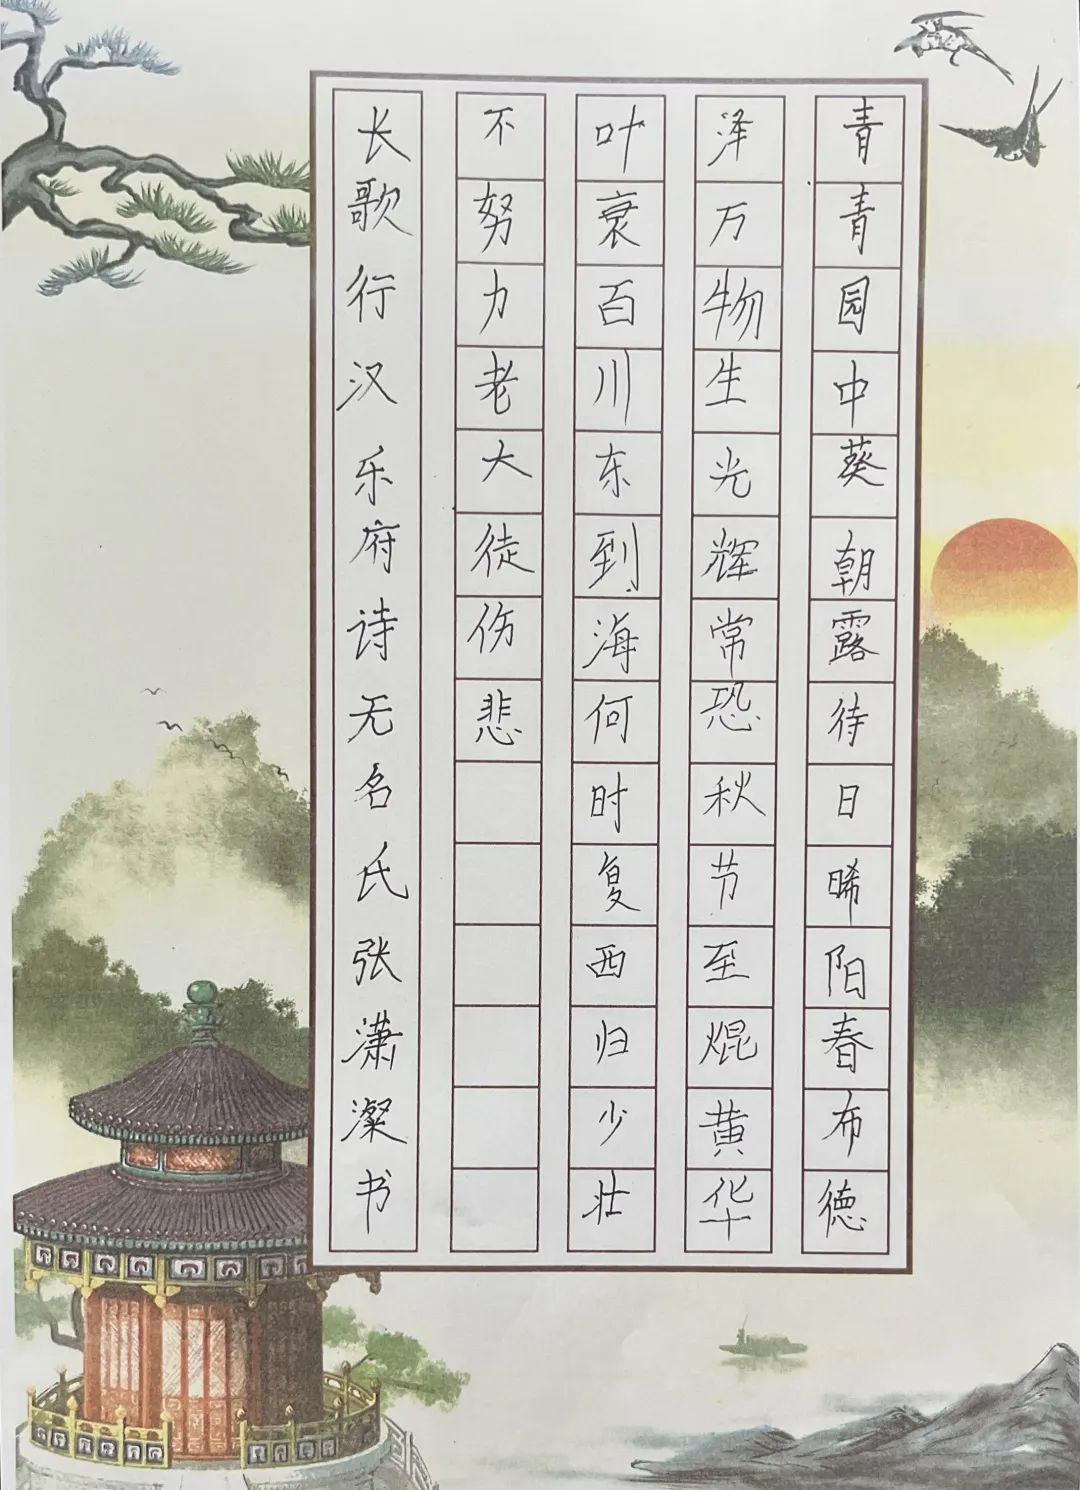 青青园中葵朝露待日晞阳春布德
泽万物生光辉常恐秋节至焜黄华
叶衰百川东到海何时复西归少壮
不努力老大徒伤悲
长歌行汉乐府诗无名氏张潇粲书